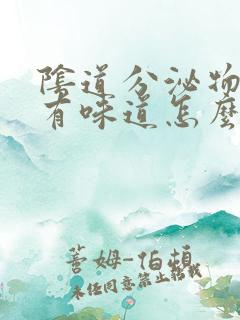 陰道分泌物
有味道怎麼
蕾姆-伯頓
未经同意禁止转载